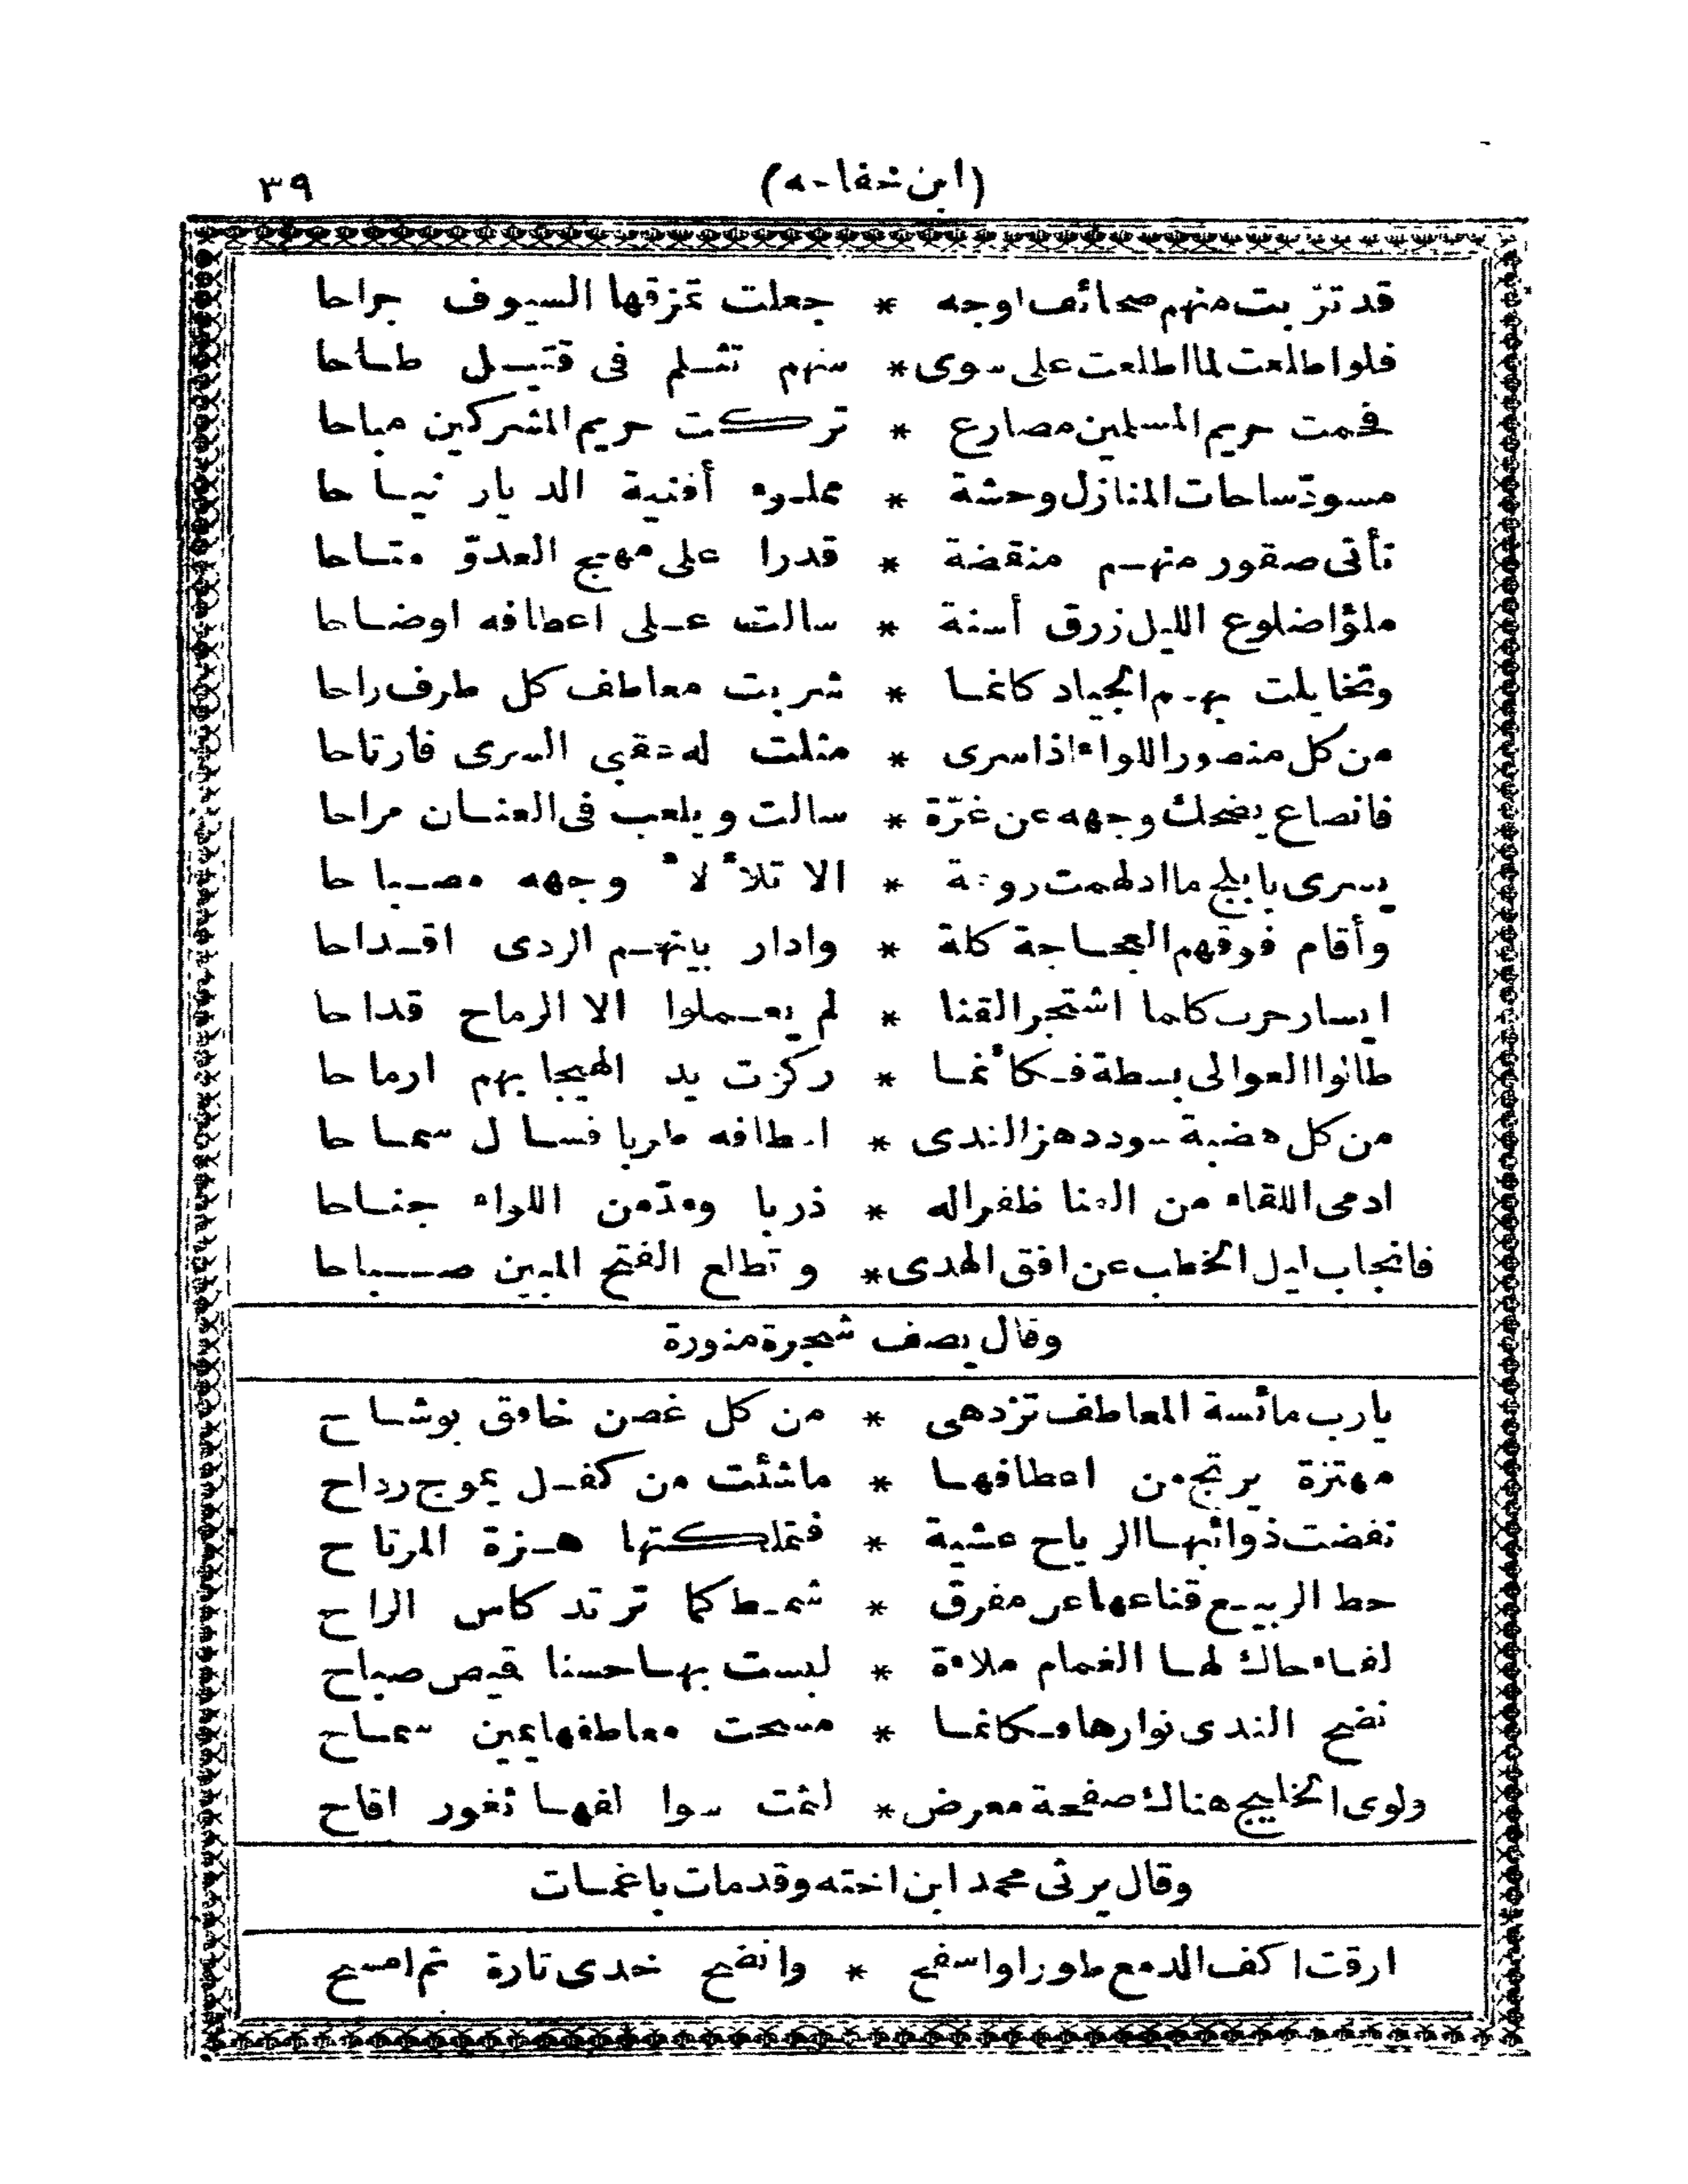 (ابن خفاجه) ٣٩
قد ترّبت منهم صحائف اوجه * جعلت تمزقها السيوف جراحا
فلوا طلعت لما اطلعت على سوى * منهم تثلم فى قتيل طاحا
فحمت حريم المسلمين مصارع * تركت حريم المشركين مباحا
مسودّ ساحات المنازل وحشة * مملوء أفنية الديار نياحا
تأتى صقور منهم منقضة * قدرا على مهج العدوّ متاحا
ملؤا ضلوع الليل زرق أسنة * سالت على اعطافه اوضاحا
وتخايلت بهم الجياد كانما * شربت معاطف كل طرف راحا
من كل منصور اللواء اذا سرى * مثلت له عقبى السرى فارتاحا
فانصاع يضحك وجهه عن غرّة * سالت ويلعب فى العنان مراحا
يسرى بابلج ما ادلهمت روعة * الا تلألأ وجهه مصباحا
وأقام فوقهم العجاجة كلة * وادار بينهم الردى اقداحا
ايسار حرب كلما اشتجر القنا * لم يعملوا الا الرماح قداحا
طالوا العوالى بسطة فكأنما * ركزت يد الهيجا بهم ارماحا
من كل هضبة سودد هز الندى * اعطافه طربا فسال سماحا
ادمى اللقاء من القنا ظفراله * ذربا ومدّ من اللواء جناحا
فانجاب ليل الخطب عن افق الهدى * وتطلع الفتح المبين صباحا
وقال يصف شجرة منورة
يارب مائسة المعاطف تزدهى * من كل غصن خافق بوشاح
مهتزة يرتج من اعطافها * ماشئت من كفل يموج رداح
نفضت ذوائبها الرياح عشية * فتملكتها هزة المرتاح
حط الربيع قناعها عن مفرق * شمط كما ترتد كاس الراح
لفاء حاك لها الغمام ملاءة * لبست بها حسنا قميص صباح
نضح الندى نوارها فكانما * مسحت معاطفها يمين سماح
ولوى الخليج هناك صفحة معرض * لثمت سوالفها ثغور اقاح
وقال يرثى محمد ابن اخته وقد مات باغمات
ارقت اكف الدمع طورا واسفح * وانضح خدى تارة ثم امسح